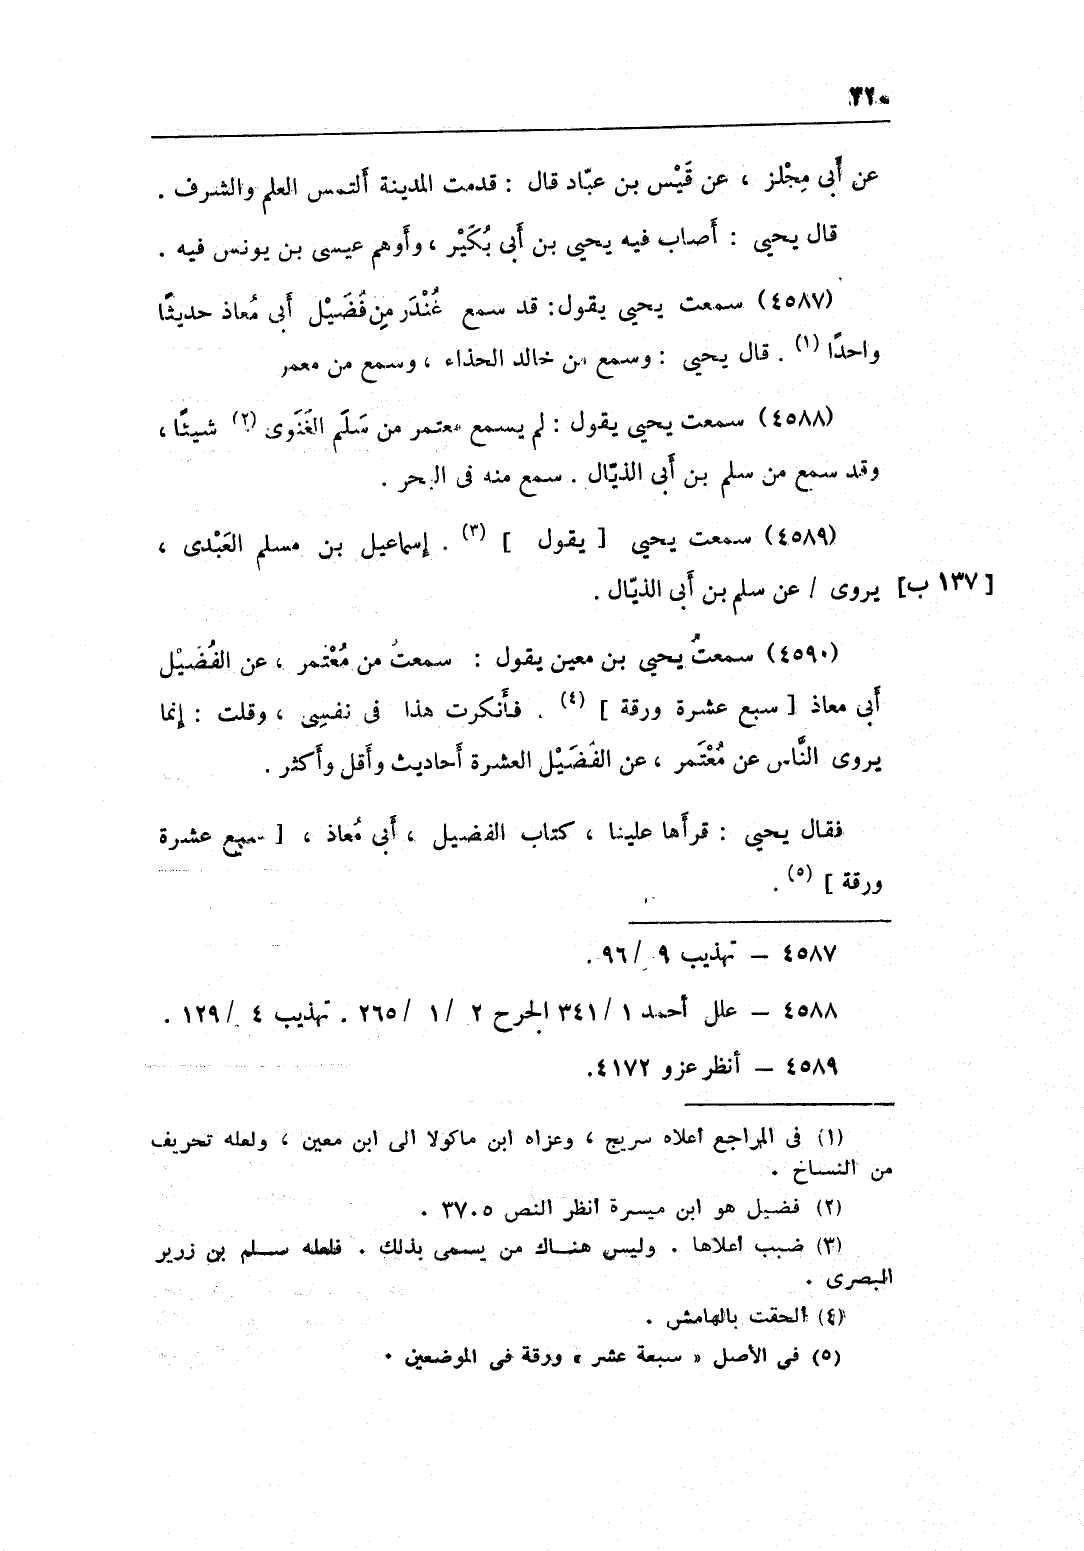 ٣٢٠
عن أَبى مِجْلز ، عن قَيْس بن عبّاد قال : قدمت المدينة أَلتمس العلم والشرف .
قال يحيى : أَصاب فيه يحيى بن أَبى بُكَيْر ، وأَوهم عيسى بن يونس فيه .
(٤٥٨٧) سمعت يحيى يقول : قد سمع غُنْدَر من فُضَيْل أَبى مُعاذ حديثًا
واحدًا (١) . قال يحيى : وسمع من خالد الحذاء ، وسمع من معمر
(٤٥٨٨) سمعت يحيى يقول : لم يسمع معتمر من سَلَم الغَنَوى (٢) شيئًا ،
وقد سمع من سلم بن أَبى الذيّال . سمع منه فى البحر .
(٤٥٨٩) سمعت يحيى [ يقول ] (٣) . إسماعيل بن مسلم العَبْدى ،
[ ١٣٧ ب] يروى / عن سلم بن أَبى الذيّال .
(٤٥٩٠) سمعتُ يحيى بن معين يقول : سمعتُ من مُعْتَمر ، عن الفُضَيْل
أَبى معاذ [ سبع عشرة ورقة ] (٤) . فأَنكرت هذا فى نفسى ، وقلت : إنما
يروى النَّاس عن مُعْتَمر ، عن الفُضَيْل العشرة أَحاديث وأَقل وأَكثر .
فقال يحيى : قرأَها علينا ، كتاب الفضيل ، أَبى مُعاذ ، [ سبع عشرة
ورقة ] (٥) .
٤٥٨٧ — تهذيب ٩ / ٩٦ .
٤٥٨٨ — علل أحمد ١ / ٣٤١ الجرح ٢ / ١ / ٢٦٥ . تهذيب ٤ / ١٢٩ .
٤٥٨٩ — أنظر عزو ٤١٧٢ .
(١) فى المراجع أعلاه سريج ، وعزاه ابن ماكولا الى ابن معين ، ولعله تحريف
من النساخ .
(٢) فضيل هو ابن ميسرة أنظر النص ٣٧٠٥ .
(٣) ضبب أعلاها . وليس هناك من يسمى بذلك . فلعله سلم بن زرير
البصرى .
(٤) ألحقت بالهامش .
(٥) فى الأصل « سبعة عشر » ورقة فى الموضعين .